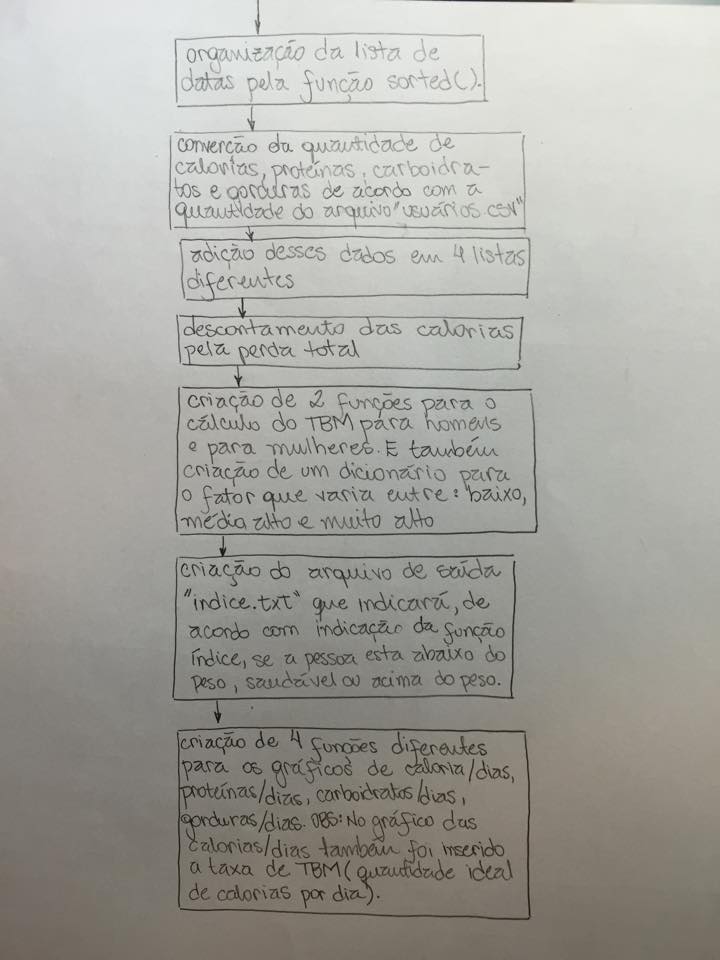 organização da lista de
datas pela função sorted().
converção da quantidade de
calorias, proteínas, carboidra-
tos e gorduras de acordo com a
quantidade do arquivo "usuários.csv"
adição desses dados em 4 listas
diferentes
descontamento das calorias
pela perda total
criação de 2 funções para o
cálculo do TBM para homens
e para mulheres. E também
criação de um dicionário para
o fator que varia entre: baixo,
média alto e muito alto
criação do arquivo de saída
"indice.txt" que indicará, de
acordo com indicação da função
índice, se a pessoa esta abaixo do
peso, saudável ou acima do peso.
criação de 4 funções diferentes
para os gráficos de caloria/dias,
proteínas/dias, carboidratos/dias,
gorduras/dias. OBS: No gráfico das
calorias/dias também foi inserido
a taxa de TBM (quantidade ideal
de calorias por dia).